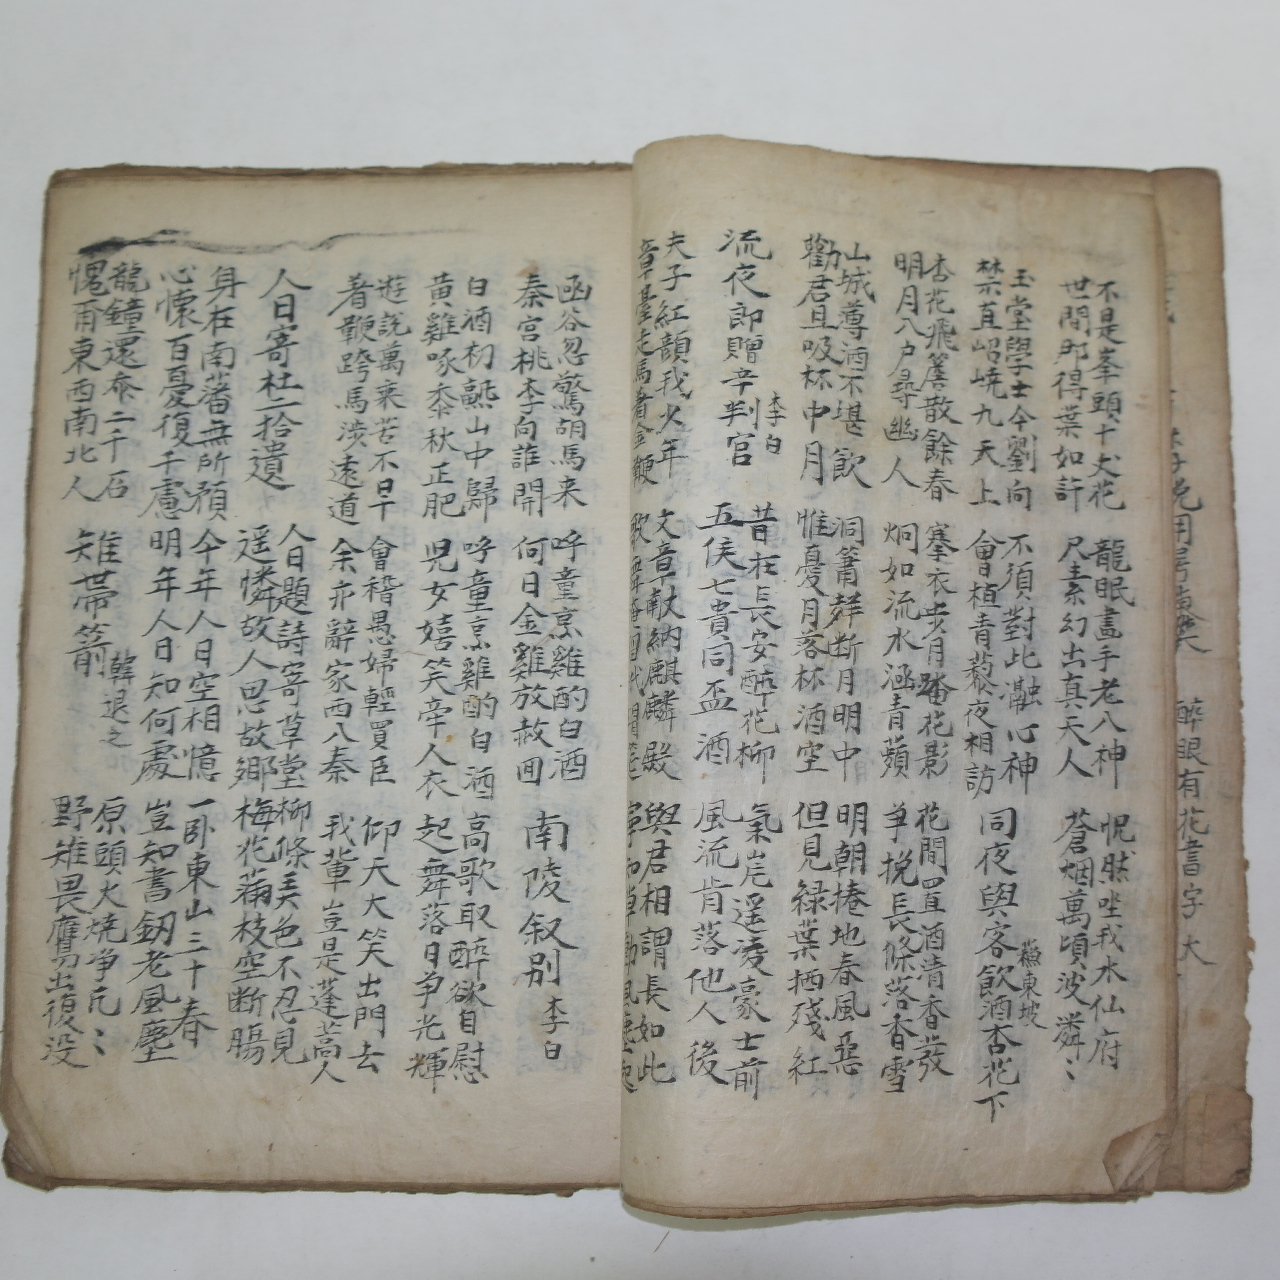 醉眼有花書字大
不是峯頭十丈花
世間那得葉如許
龍眠畫手老入神
尺素幻出真天人
怳然坐我水仙府
蒼烟萬頃波粼〻
玉堂學士今劉向
禁直岧嶢九天上
不須對此瀜心神
會植青藜夜相訪
同夜與客飲酒杏花下
蘓東坡
杏花飛簾散餘春
明月入户尋幽人
褰衣步月踏花影
炯如流水涵青蘋
花間置酒清香發
爭挽長條落香雪
山城尊酒不堪飲
勸君且吸杯中月
洞簫聲断月明中
惟憂月落杯酒空
明朝捲地春風惡
但見緑葉栖殘紅
流夜郎贈辛判官
李白
昔在長安醉花柳
五侯七貴同盃酒
氣岸遥凌豪士前
風流肯落他人後
夫子紅顔我少年
章臺走馬著金鞭
文章献納麒麟殿
與君相謂長如此
函谷忽驚胡馬来
秦宮桃李向誰開
呼童烹雞酌白酒
何日金雞放赦囬
南陵叙別
李白
白酒初熟山中歸
黃雞啄黍秋正肥
呼童烹雞酌白酒
児女嬉笑牽人衣
高歌取醉欲自慰
起舞落日爭光輝
遊説萬乗苦不早
着鞭跨馬涉遠道
會稽愚婦輕買臣
余亦辭家西入秦
仰天大笑出門去
我輩豈是蓬蒿人
人日寄杜二拾遺
人日題詩寄草堂
遥憐故人思故鄉
柳條美色不忍見
梅花滿枝空断腸
身在南蕃無所預
心懷百憂復千慮
今年人日空相憶
明年人日知何處
一卧東山三十春
豈知書釼老風塵
龍鐘還忝二千石
愧爾東西南北人
雉帶箭
韓退之
原頭火燒净兀〻
野雉畏鷹出復没